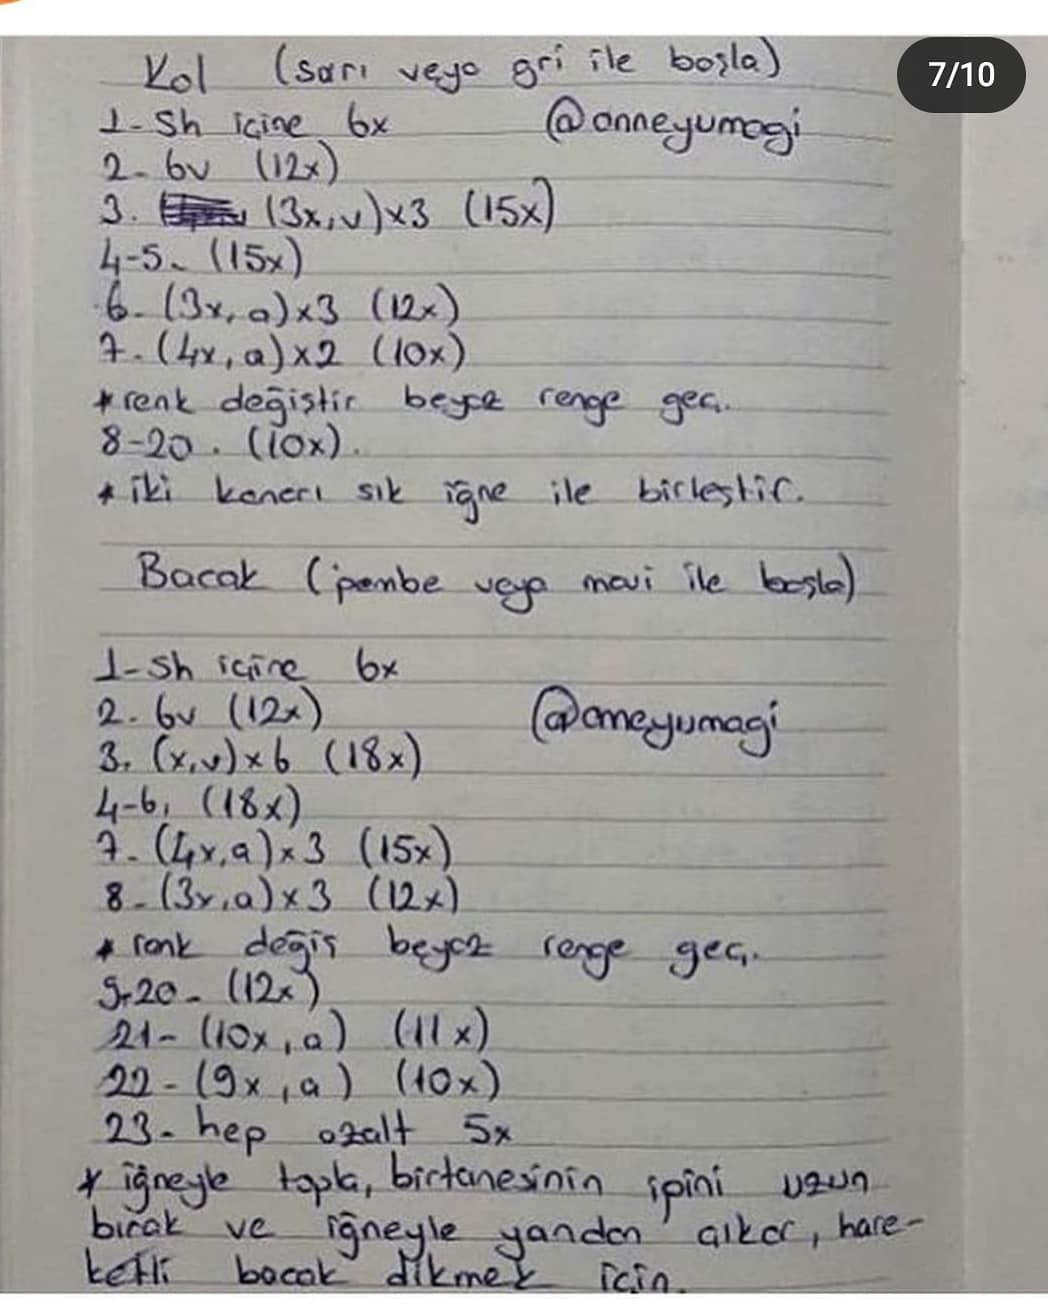 Kol (sarı veya gri ile başla)
7/10
1-Sh içine 6x @anneyumagi
2- 6v (12x)
3. (3x,v)x3 (15x)
4-5- (15x)
6- (3x,a)x3 (12x)
7-(4x,a)x2 (10x)
*renk değiştir beyaz renge geç.
8-20. (10x).
*iki kenarı sık iğne ile birleştir.
Bacak (pembe veya mavi ile başla)
1-Sh içine 6x
2. 6v (12x) @anneyumagi
3. (x,v)x6 (18x)
4-6, (18x)
7-(4x,a)x3 (15x)
8-(3x,a)x3 (12x)
* renk değiş beyaz renge geç.
9-20- (12x)
21- (10x,a) (11x)
22-(9x,a) (10x)
23- hep azalt 5x
* iğneyle topla, birtanesinin ipini uzun
bırak ve iğneyle yandan çıkar, hare-
ketli bacak dikmek için.